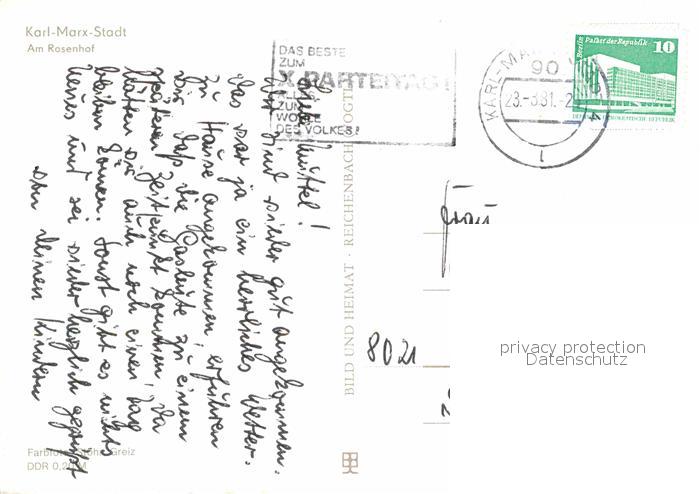 Karl-Marx-Stadt
Am Rosenhof
DAS BESTE
ZUM
X. PARTEITAG!
ALLES
ZUM
WOHLE
DES VOLKES!
KARL-MA
90
23.-3.81.-2
Berlin Palast der Republik 10
DEUTSCHE DEMOKRATISCHE REPUBLIK
Liebe Mutti!
Wir sind wieder gut angekommen.
Das war ja ein herrliches Wetter.
Zu Hause angekommen, erfuhren
wir, daß die Gasleute zu einem
späteren Zeitpunkt kommen, da
hätten wir auch noch einen Tag
bleiben können. Sonst gibt es nichts
neues und sei wieder herzlich gegrüßt
von Deinen Kindern
BILD UND HEIMAT · REICHENBACH VOGTL
Frau
8021
privacy protection
Datenschutz
Greiz
DDR 0,20 M